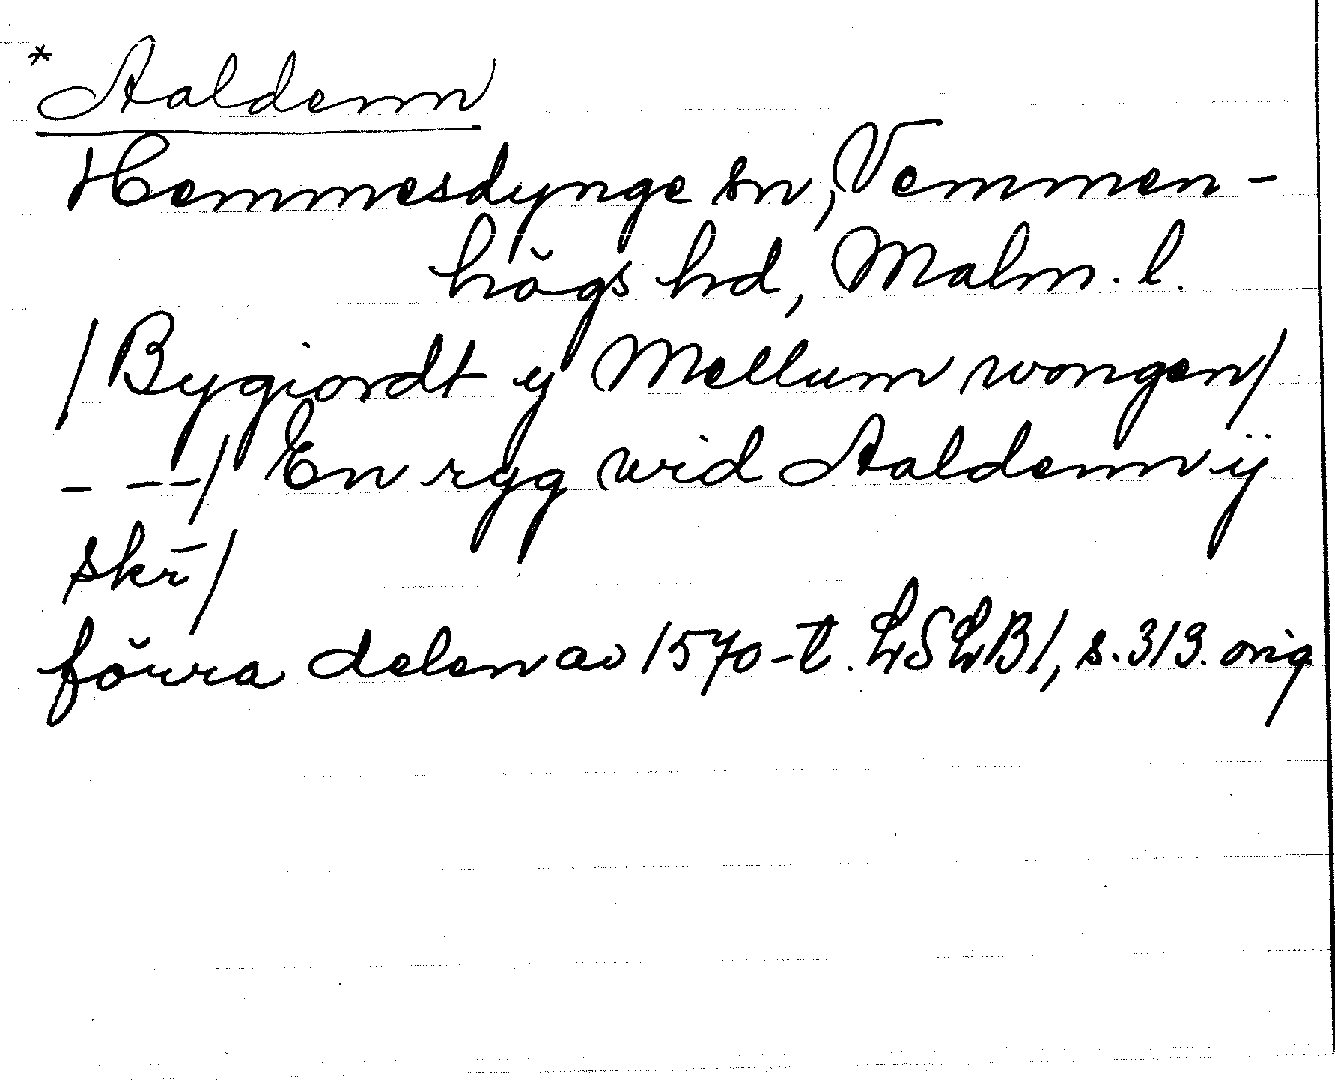 * Aaldenn
Hemmesdynge sn, Vemmen-
högs hd, Malm. l.
/ Bygiordt y Mellum wongen/
- --/ En ryg wid Aaldenn ÿ
skr̄/
förra delen av 1570-t. LSLB1, s. 319. orig